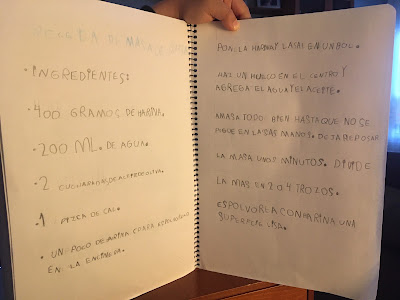 RECETA DE MASA DE
· INGREDIENTES:
· 400 GRAMOS DE HARINA.
· 200 ML. DE AGUA.
· 2 CUCHARADAS DE ACEITE DE OLIVA.
· 1 PIZCA DE SAL.
· UN POCO DE HARINA PARA ESPOLVOREAR
EN LA ENCIMERA.
PON LA HARINA Y LA SAL EN UN BOL.
HAZ UN HUECO EN EL CENTRO Y
AGREGA EL AGUA Y EL ACEITE.
AMASA TODO BIEN HASTA QUE NO SE
PEGUE EN LAS MANOS. DEJA REPOSAR
LA MASA UNOS MINUTOS. DIVIDE
LA MAS EN 2 O 4 TROZOS.
ESPOLVOREA CON HARINA UNA
SUPERFICIE LISA.